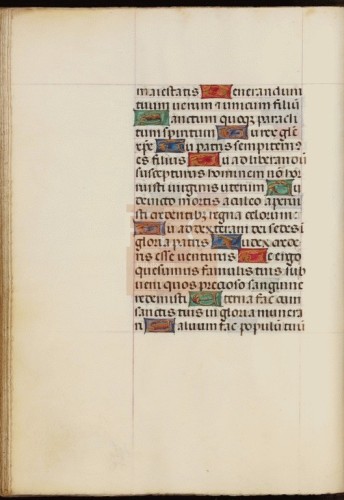 maiestatis Venerandum
tuum uerum & unicum filiũ
Sanctum quoq; paracli
tum spiritum Tu rex glẽ
xp̃e Tu patris sempitern9
es filius Tu ad liberandũ
suscepturus hominem nõ hor
ruisti uirginis uterum Tu
deuicto mortis aculeo aperui
sti credentibus regna celorum:
Tu ad dexteram dei sedes i
gloria patris Iudex crede
ris esse uenturus Te ergo
quesumus famulis tuis sub
ueni quos precioso sanguine
redemisti Eterna fac cum
sanctis tuis in gloria munera
ri Saluum fac populũ tuũ